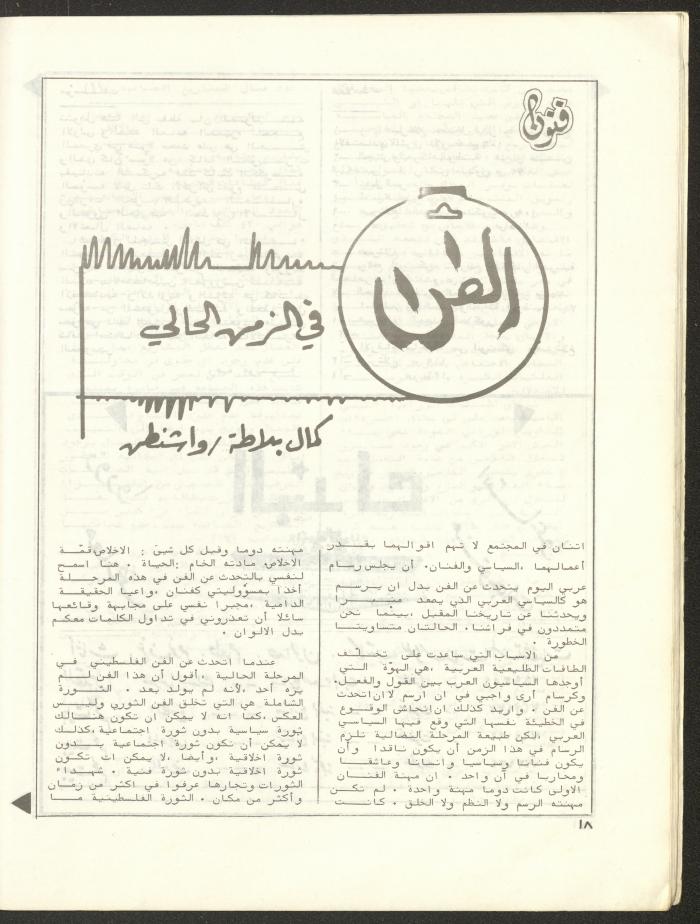 فنون
الفن
في الزمن الحالي
كمال بلاطة / واشنطن
اثنان في المجتمع لا تهم اقوالهما بقدر
أعمالهما ،السياسي والفنان. أن يجلس رسام
عربي اليوم يتحدث عن الفن بدل ان يرسم
هو كالسياسي العربي الذي يصعد منبرا
ويحدثنا عن تاريخنا المقبل ،بينما نحن
متمددون في فراشنا. الحالتان متساويتا
الخطورة .
من الاسباب التي ساعدت على تخلف
الطاقات الطليعية العربية ،هي الهوّة التي
أوجدها السياسيون العرب بين القول والفعل.
وكرسام أرى واجبي في ان ارسم لا ان اتحدث
عن الفن . واريد كذلك ان اتحاشى الوقوع
في الخطيئة نفسها التي وقع فيها السياسي
العربي ،لكن طبيعة المرحلة النضالية تلزم
الرسام في هذا الزمن أن يكون ناقدا وأن
يكون فنانا وسياسيا وانسانا وعاشقا
ومحاربا في آن واحد . ان مهنة الفنان
الاولى كانت دوما مهنة واحدة . لم تكن
مهنته الرسم ولا النظم ولا الخلق . كانت
مهنته دوما وقبل كل شيئ : الاخلاص قمّة
الاخلاص. مادته الخام :الحياة . هنا اسمح
لنفسي بالتحدث عن الفن في هذه المرحلة
أخذا بمسؤوليتي كفنان ،واعيا الحقيقة
الدامية ،مجبرا نفسي على مجابهة وقائعها
سائلا أن تعذروني في تداول الكلمات معكم
بدل الالوان .
عندما اتحدث عن الفن الفلسطيني في
المرحلة الحالية ،أقول أن هذا الفن لم
يره أحد ،لأنه لم يولد بعد . الثورة
الشاملة هي التي تخلق الفن الثوري وليس
العكس ،كما انه لا يمكن ان تكون هنالك
ثورة سياسية بدون ثورة اجتماعية ،كذلك
لا يمكن أن تكون ثورة اجتماعية بدون
ثورة اخلاقية ،وأيضا ،لا يمكن ان تكون
ثورة اخلاقية بدون ثورة فنية . شهداء
الثورات وتجارها عرفوا في اكثر من زمان
وأكثر من مكان . الثورة الفلسطينية ما
١٨